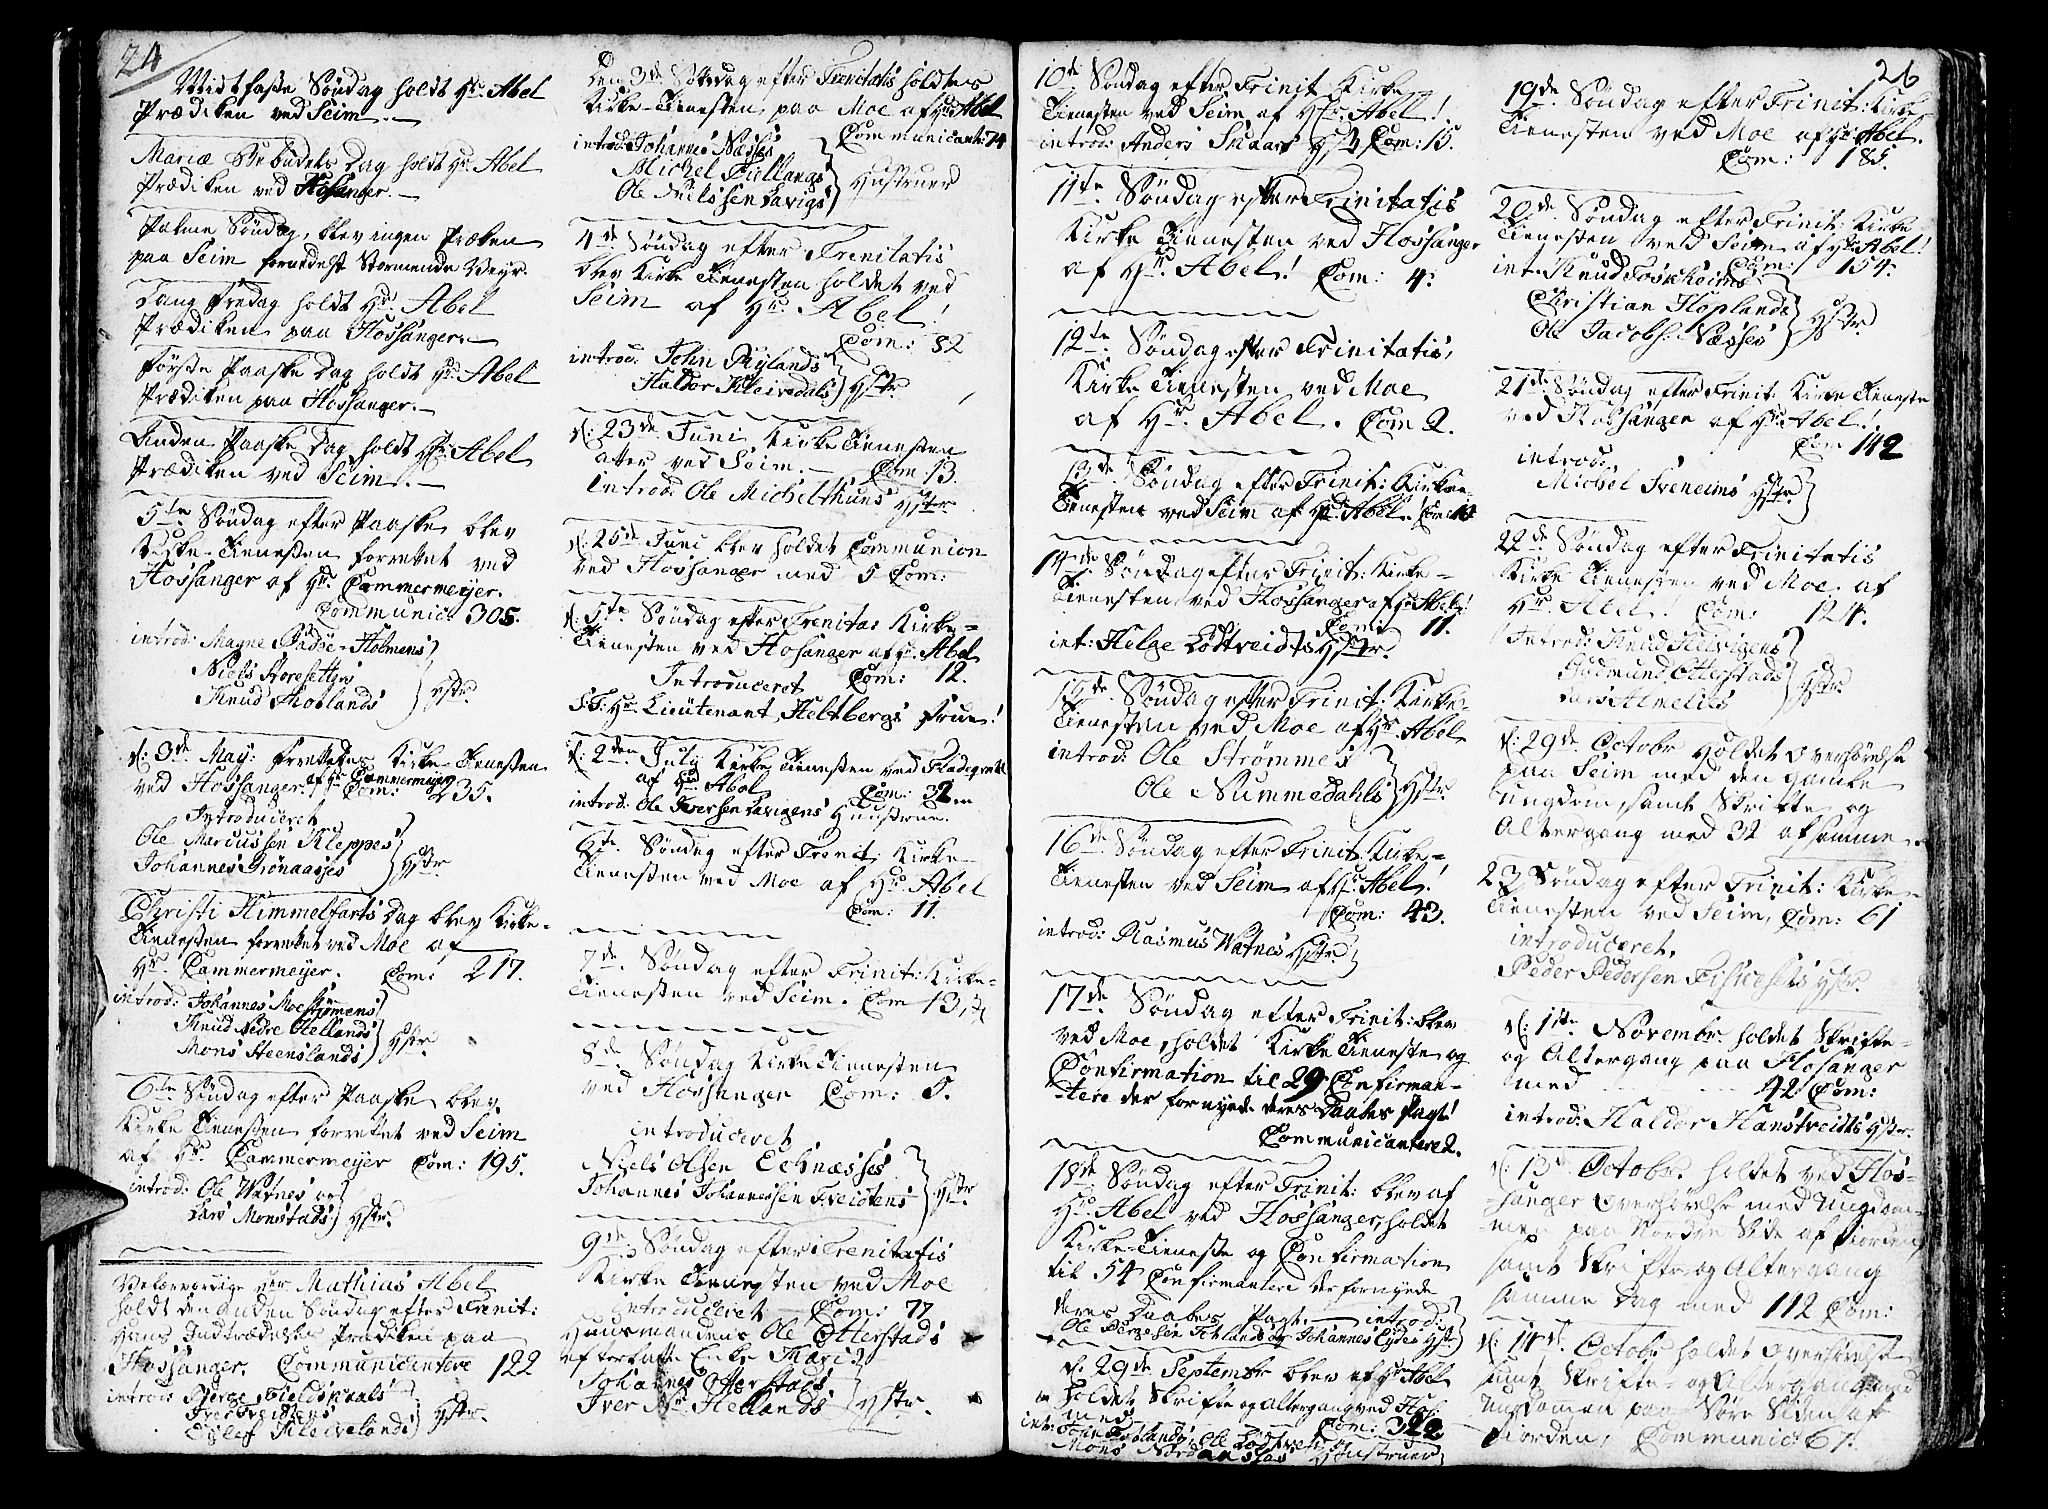 24
Midtfaste Søndag holdt Hr. Abel
Prædiken ved Seim.
Mariæ Bebudels Dag holdt Hr. Abel
Prædiken ved Hosanger.
Palme Søndag, blev ingen Præken
paa Seim formedelst Stormende Veyr.
Lang Fredag holdt Hr. Abel
Prædiken paa Hossanger.
Første Paaske Dag holdt Hr. Abel
Prædiken paa Hossanger.
Anden Paaske Dag holdt Hr. Abel
Prædiken ved Seim.
5te Søndag efter Paaske blev
Kirke-Tienesten forrettet ved
Hossanger af Hr. Cammermeyer.
Communic: 305.
introd: Magne Padøe-Holmens
Niels
Knud Hotlands } Hstr.
d: 3de May: forrettedes Kirke-Tienesten
ved Hossanger. af Hr. Cammermeyer Com: 235.
Introduceret
Ole Marcussen Kleppes
Johannes Grønaases } Hstr
Christi Himmelfarts Dag blev Kirke-
Tienesten forrettet ved Moe af
Hr. Cammermeyer. Com: 217.
introd: Johannes Moestrømens
Knud Nedre Hellands
Mons Steenslands } Hstr.
6te Søndag efter Paaske blev
Kirke Tienesten forrettet ved Seim
af Hr. Cammermeyer Com: 195.
introd: Ole Watnes og
Lars Monstads } Hstr.
Velærværdige Herr Mathias Abel
holdt den Anden Søndag efter Trenit:
Hans Indtrædelses Prædiken paa
Hossanger. Communicantere 122
introd: Børge Fieldskaals
Iver Tveitens
Kleivelands } Hstr.
Den 3de Søndag efter Trenitatis holdtes
Kirke-Tienesten paa Moe af Hr. Abel
Communicant: 74
introd: Johannes Næsses
Michel Fiellangs
Ole Neilssen Lavigs } Hustruer
4de Søndag efter Trenitatis
blev Kirke Tienesten holdet ved
Seim af Hr. Abel!
Com: 82
introd. John Rylands
Haldor Kleivedals } Hstr.
d: 23de Juni Kirke Tienesten
atter ved Seim. Com 13.
Introd: Ole Michelthuns Hstr.
d: 25de Juni blev holdet Communion
ved Hossanger med 5 Com:
d: 5te Søndag efter Trenitas Kirke-
Tienesten ved Hosanger af Hr. Abel
Introduceret Com: 12.
S.T. Hr. Lieutenant Heltbergs Frue!
d: 2den July Kirke Tienesten ved
af Hr. Abel Com: 32
introd: Ole Iversen Lavigens Huustrue.
6te Søndag efter Trenit: Kirke-
Tienesten ved Moe af Hr. Abel
Com: 11.
7de Søndag efter Trinit: Kirke-
Tienesten ved Seim. Com 13
8de Søndag Kirke Tienesten
ved Hossanger Com: 5.
introduceret
Niels Olsen Echnæsses
Johannes Johannessen Tveitens } Hstr
9de Søndag efter Trenitatis
Kirke Tienesten ved Moe
introduceret Com: 77
Huusmandens Ole Otterstads
efterladte Enke Mari
Johannes Otterstads
Iver N. Hellands } Hstr.
10de Søndag efter Trinit Kirke
Tienesten ved Seim af Hr. Abel!
introd: Anders Skaars Hstr Com: 15.
11te Søndag efter Trinitatis
Kirke Tienesten ved Hossanger
af Hr. Abel! Com: 4.
12te Søndag efter Trinitatis,
Kirke Tienesten ved Moe
af Hr. Abel. Com 2.
13de Søndag efter Trinit: Kirke-
Tienesten ved Seim af Hr. Abel. Com:
14de Søndag efter Trinit: Kirke-
Tienesten ved Hossanger af Hr. Abel!
Com: 11.
int: Helge Lødtveidts Hstr.
15de Søndag efter Trinit: Kirke-
Tienesten ved Moe af Hr. Abel
introd: Ole Strømmes
Ole Nummedahls } Hstr.
16de Søndag efter Trinit: Kirke-
Tienesten ved Seim af Hr. Abel!
Com: 43.
introd: Rasmus Watnes Hstr
17de Søndag efter Trinit: blev
ved Moe, holdet Kirke Tieneste og
Confirmation til 29 Confirman-
tere der fornyede deres Daabes Pagt!
Communicantere 2.
18de Søndag efter Trinit: blev af
Hr. Abel ved Hossanger, holdet
Kirke-Tieneste og Confirmation
til 54 Confirmantere der fornyede
deres Daabes Pagt. introd:
Ole Johannes Eydes Hstr
d: 29de Septembr blev af Hr. Abel
holdet Skrifte og Altergang ved Hos:
med Com: 322
int: Ole Lødtveits og
Mons Nordanssøes Hustruer
26
19de Søndag efter Trinit: Kirke
Tienesten ved Moe af Hr. Abel.
Com: 185.
20de Søndag efter Trinit: Kirke
Tienesten ved Seim af Hr. Abel!
Com: 154.
int. Knud Fosseims
Christian Hoplands
Ole Jacobs: Næsses } Hstr.
21de Søndag efter Trinit: Kirke Tieneste
ved Hossanger af Hr. Abel!
Com 142
introd.
Michel Sveneims Hstr.
22de Søndag efter Trinitatis
Kirke Tienesten ved Moe af
Hr. Abel! Com: 124.
Introd: Knud Helvigens
Gudmund Otterstads
Lars Almelids } Hstr.
d: 29de Octobr Holdet Overhørelse
paa Seim med den gamle
Ungdom, samt Skrifte og
Altergang med 32 af samme.
23 Søndag efter Trinit: Kirke-
Tienesten ved Seim, Com: 61
introduceret.
Peder Pedersen Fiskesets Hstr.
d: 1ste Novembr. holdet Skrifte-
og Altergang paa Hosanger
med 42 Com:
introd: Haldor Hanstveidts Hstr.
d: 13de Octobr. holdet ved Hos-
sanger Overhørelse med Ungdom-
men paa Nordre Side af Fiorden
samt Skrifte og Altergang
samme Dag med 112 Com:
d: 14de Octobr holdet Overhørelse
samt Skrifte- og Altergang med
Ungdomen paa Søre Siden af
Fiorden, Communic: 67.